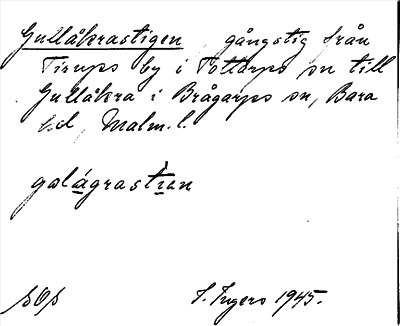 Gullåkrastigen gångstig från
Tirups by i Tottarps sn till
Gullåkra i Brågarps sn, Bara
hd, Malm. l.
I. Ingers 1945.